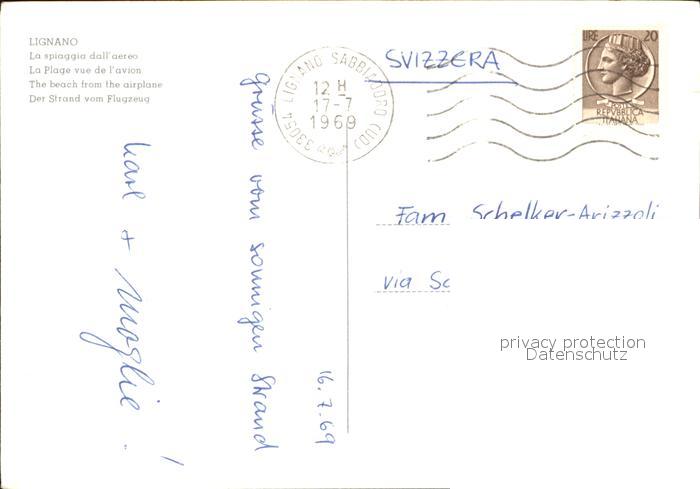 LIGNANO
La spiaggia dall'aereo
La Plage vue de l'avion
The beach from the airplane
Der Strand vom Flugzeug
33054 LIGNANO SABBIADORO (UD)
12 H
17-7
1969
SVIZZERA
LIRE 20
POSTE
REPVBBLICA
ITALIANA
Fam Schelker-Arizzoli
via Sc
privacy protection
Datenschutz
16.7.69
grüsse vom sonnigen Strand
Karl + Moglie!